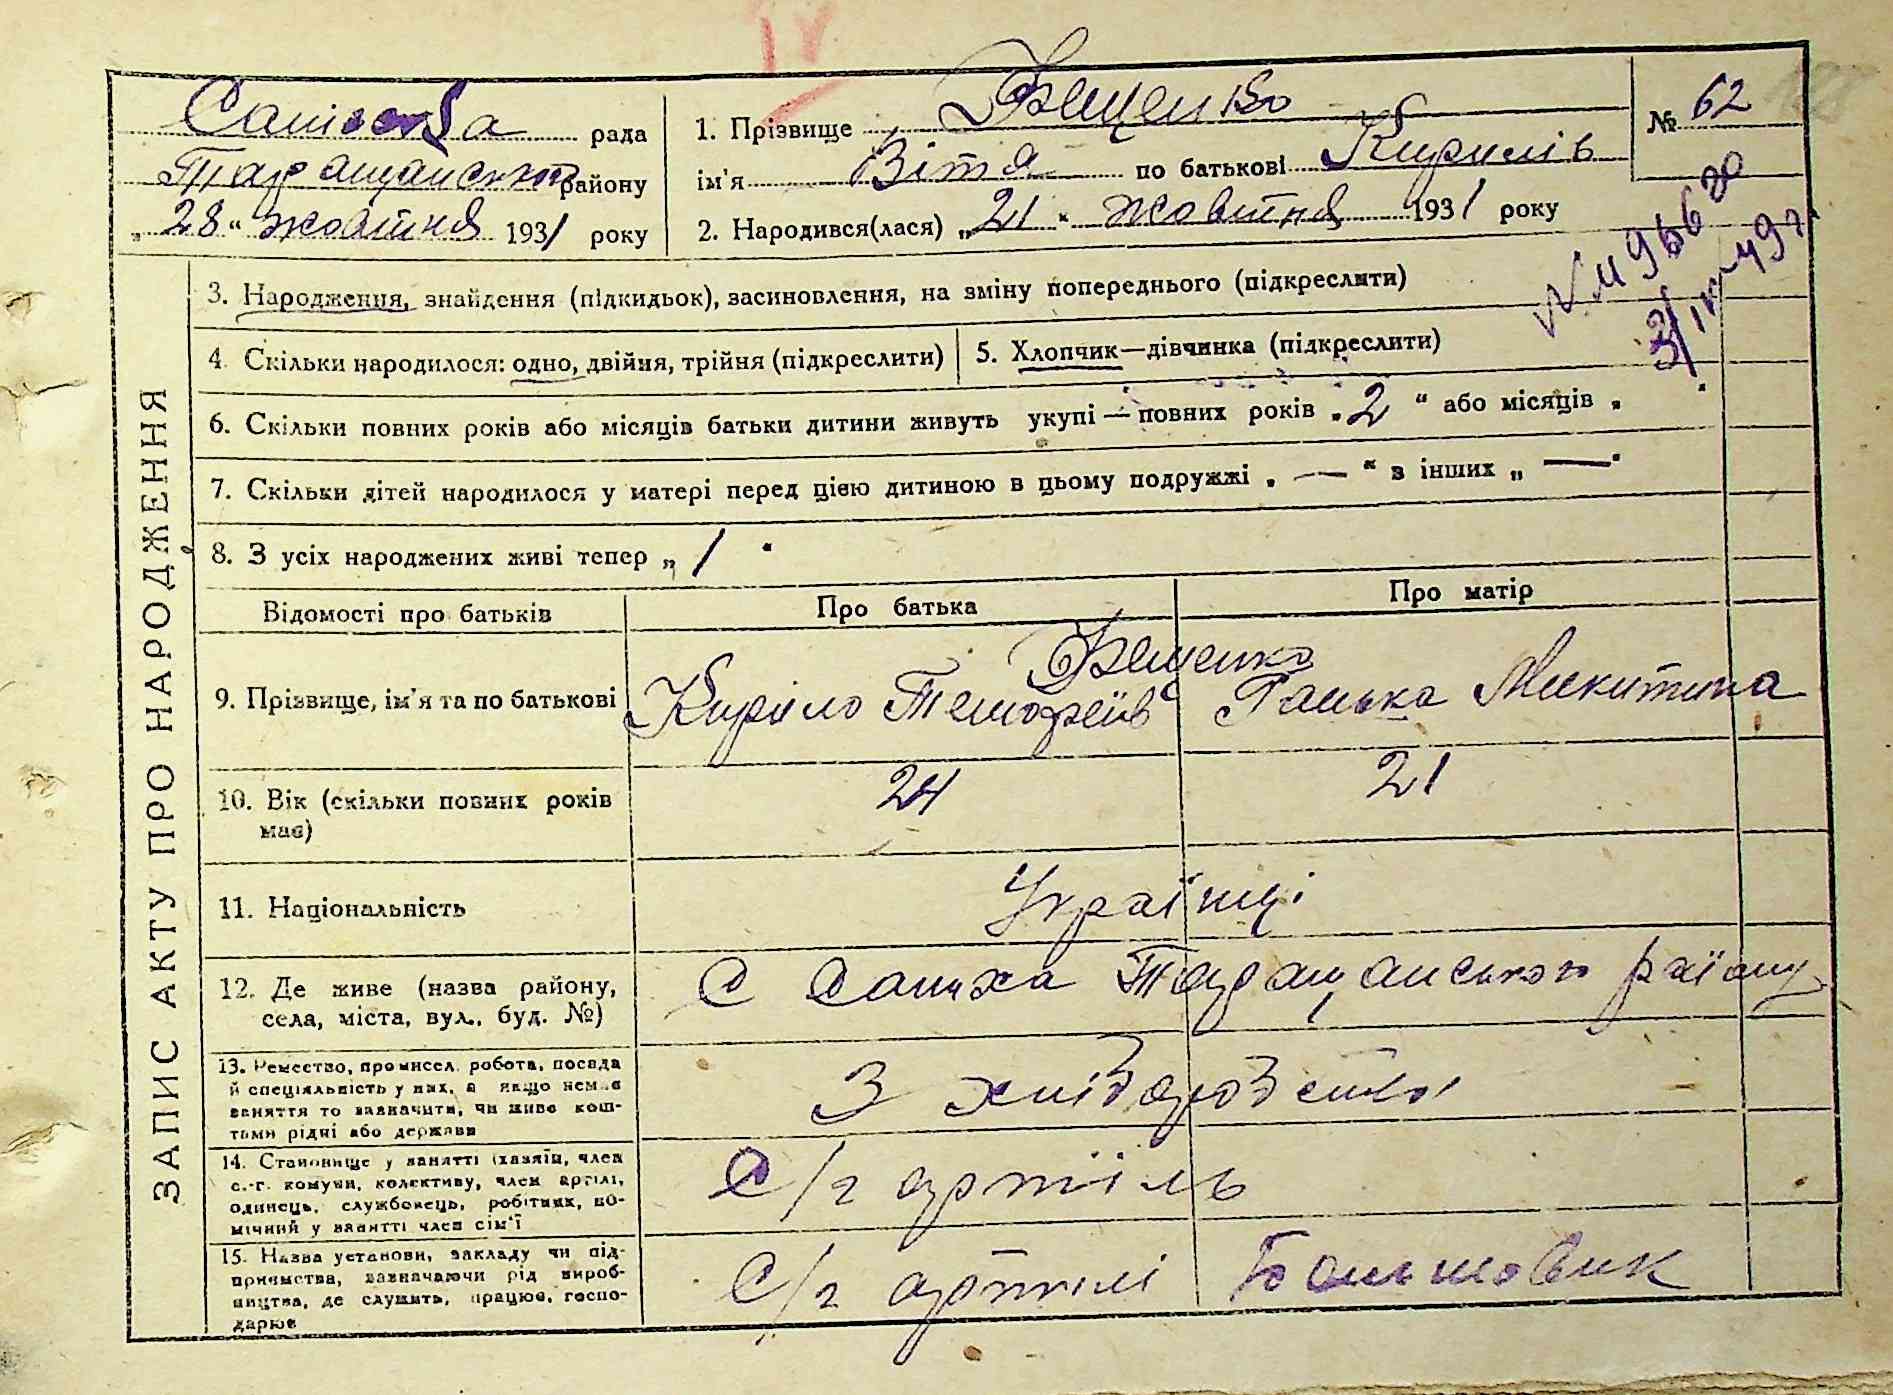 рада
Таращанського району
„ 28 “ жовтня 1931 року
1. Прізвище Фещенко
ім'я Вітя по батькові Кирилів
2. Народився(лася) „ 21 “ жовтня 1931 року
№ 62
ЗАПИС АКТУ ПРО НАРОДЖЕННЯ
3. Народження, знайдення (підкидьок), засиновлення, на зміну попереднього (підкреслити)
4. Скільки народилося: одно, двійня, трійня (підкреслити)
5. Хлопчик—дівчинка (підкреслити)
6. Скільки повних років або місяців батьки дитини живуть укупі — повних років „ 2 “ або місяців „ “
7. Скільки дітей народилося у матері перед цією дитиною в цьому подружжі „ — “ з інших „ — “
8. З усіх народжених живі тепер „ 1 “
Відомості про батьків
Про батька
Про матір
9. Прізвище, ім'я та по батькові
Фещенко
Кирило Темофеїв
Ганька Микитина
10. Вік (скільки повних років
має)
24
21
11. Національність
Українці
12. Де живе (назва району,
села, міста, вул., буд. №)
С Таращанського району
13. Ремество, промисел, робота, посада
й спеціяльність у них, а якщо немає
заняття то зазначити, чи живе кош-
тами рідні або держави
З хліборобства
14. Становище у занятті (хазяїн, член
с.-г. комуни, колективу, член артілі,
одинець, службовець, робітник, по-
мічний у занятті член сім'ї
С/г артіль
15. Назва установи, закладу чи під-
приємства, зазначаючи рід вироб-
ництва, де служить, працює, госпо-
дарює
С/г артілі Большовик